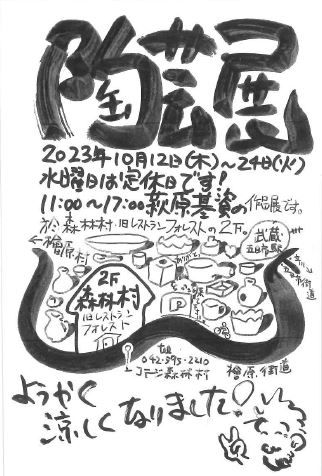 陶芸展
2023年10月12日(木)〜24日(火)
水曜日は定休日です!
11:00〜17:00 萩原基資の作品展です。
於 森林村 旧レストランフォレストの2F。
←檜原村
武蔵
五日市駅
五日市街道
2F
森林村
旧レストラン
フォレスト
P
tel
042-595-2210
コテージ森林村
檜原街道
ようやく
涼しくなりました!